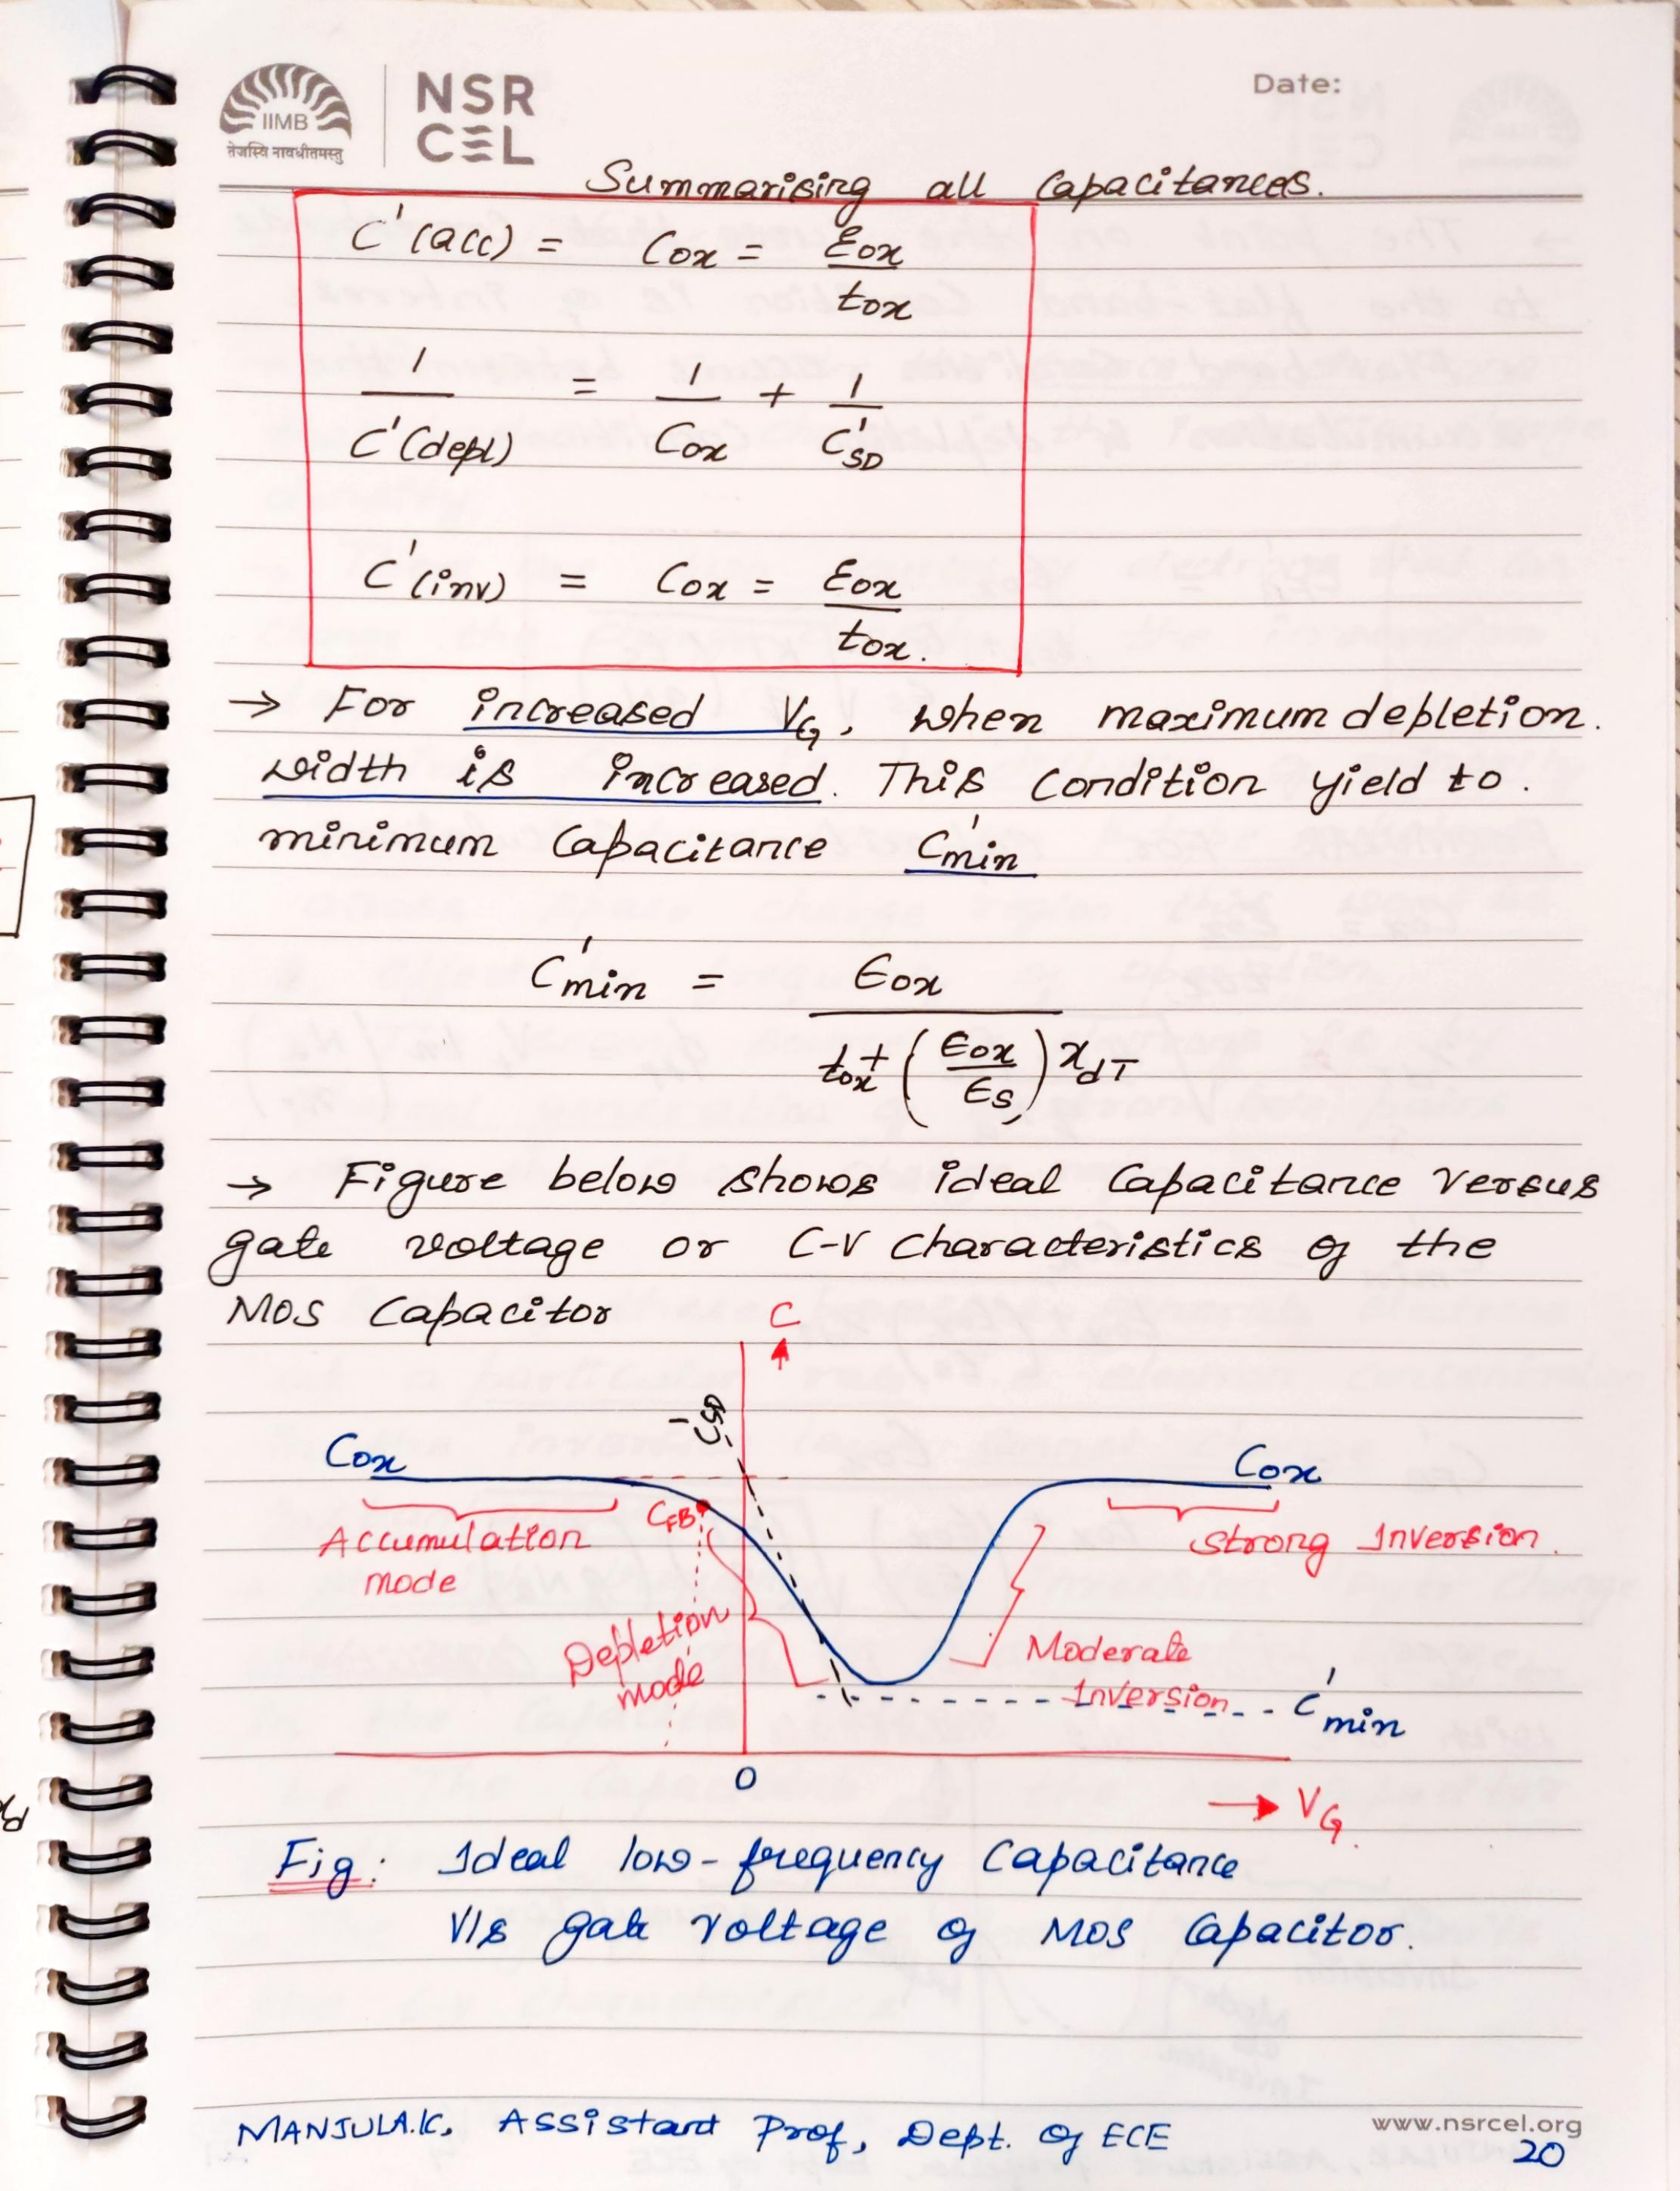 IIMB
तेजस्वि नावधीतमस्तु
NSR
CEL
Date:
Summarising all Capacitances.
C'(acc) = Cox = Eox
tox
1 = 1 + 1
C'(depl) Cox C'SD
C'(inv) = Cox = Eox
tox.
→ For increased VG, when maximum depletion.
width is increased. This condition yield to.
minimum Capacitance C'min
C'min = ϵox
tox + (ϵox/ϵs) xdT
→ Figure below shows ideal Capacitance versus
gate voltage or C-V characteristics of the
MOS Capacitor
C
C'SD
Cox
Cox
CFB
Accumulation
mode
Strong Inversion.
Depletion
mode
Moderate
Inversion
C'min
0
→ VG.
Fig: Ideal low-frequency Capacitance
V/s gate voltage of MOS Capacitor.
MANJULA.K, Assistant Prof, Dept. of ECE
www.nsrcel.org
20